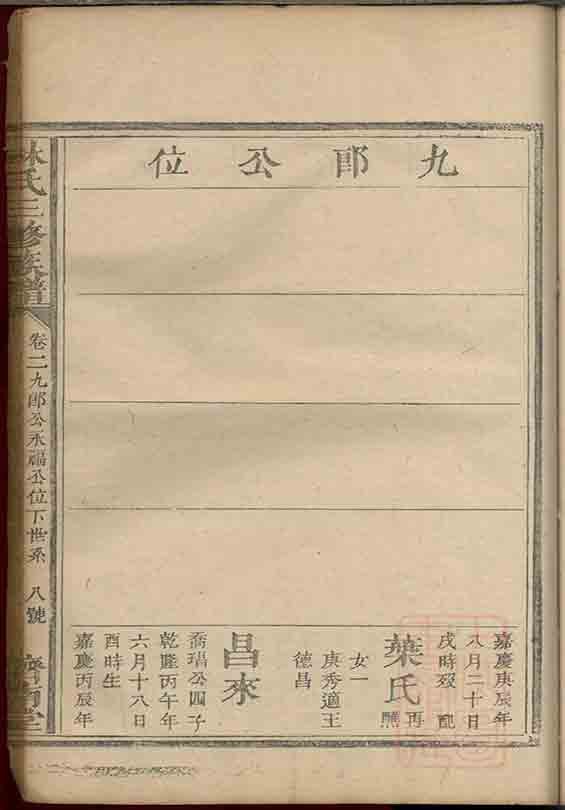 九郎公位
嘉慶庚辰年
八月二十日
戌時歿 配
葉氏 再
醮
女一
庚秀適王
德昌
昌來
喬瑁公四子
乾隆丙午年
六月十八日
酉時生
嘉慶丙辰年
林氏三修族譜
卷二九郎公永福公位下世系 八號
濟南堂